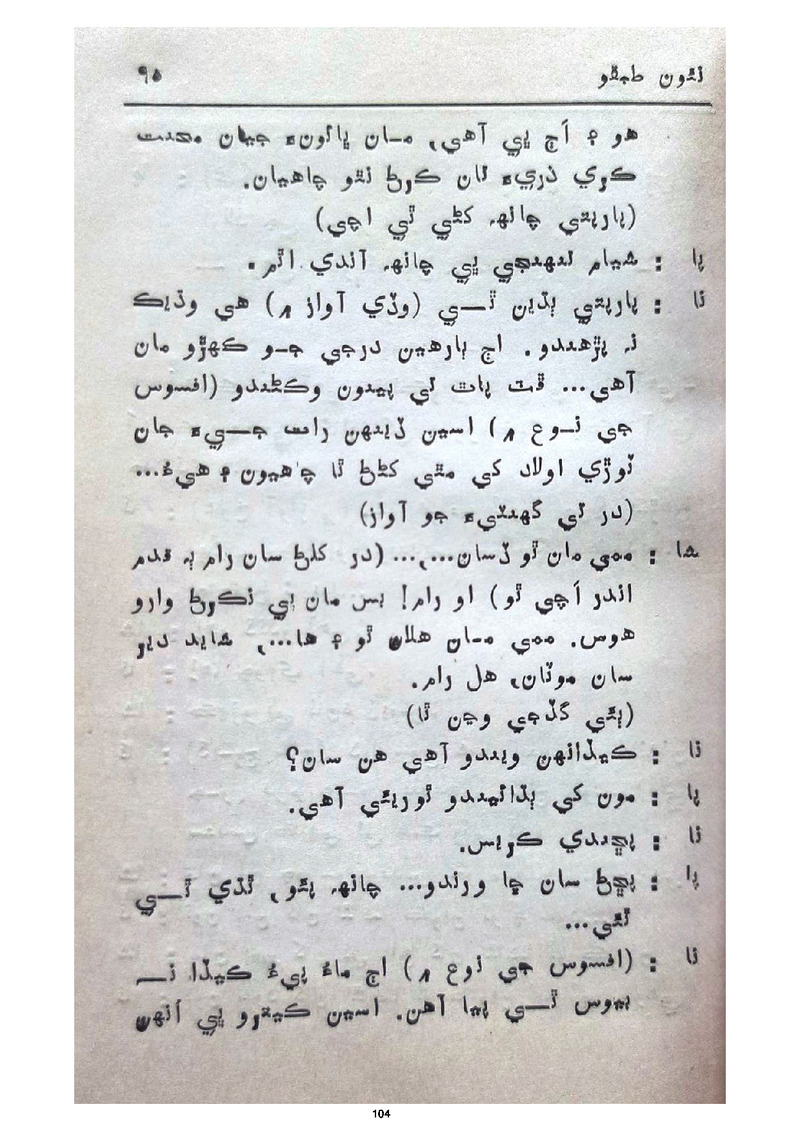 نئون طبقو ۹۵
هو ۽ اَڄ پي آهي، مان ڀائونءَ جيان محنت
ڪري ذريءَ تان ڪرڻ نٿو چاهيان.
(پارپتي چانهہ کڻي ٿي اچي)
پا : شيام تنهنجي پي چانهہ آندي اٿم.
تا : پارپتي ٻڌين ٿي (وڏي آواز ۾) هي وڌيڪ
نہ پڙهندو. اڄ ٻارهين درجي جو ڪهڙو مان
آهي... فٽ پاٿ تي پيندون وڪڻندو (افسوس
جي نوع ۾) اسين ڏينهن رات جيءَ جان
توڙي اولاد کي مٿي کڻڻ ٿا چاهيون ۽ هيءُ...
(در تي گهنٽيءَ جو آواز)
شا : ممي مان ٿو ڏسان...،... (در کلڻ سان رام ٻہ قدم
اندر اَچي ٿو) او رام! بس مان ٻي نڪرڻ وارو
هوس. ممي مان هلان ٿو ۽ ها...، شايد دير
سان موٽان، هل رام.
(ٻئي گڏجي وڃن ٿا)
تا : ڪيڏانهن ويندو آهي هن سان؟
پا : مون کي ٻڌائيندو ٿورئي آهي.
تا : پڇندي ڪريس.
پا : پڇڻ سان ڇا ورندو... چانهہ پئو، ٿڌي ٿي
ٿئي...
تا : (افسوس جي نوع ۾) اڄ ماءُ پيءُ ڪيڏا نہ
بيوس ٿي پيا آهن. اسين ڪيترو پي اَنهن
104